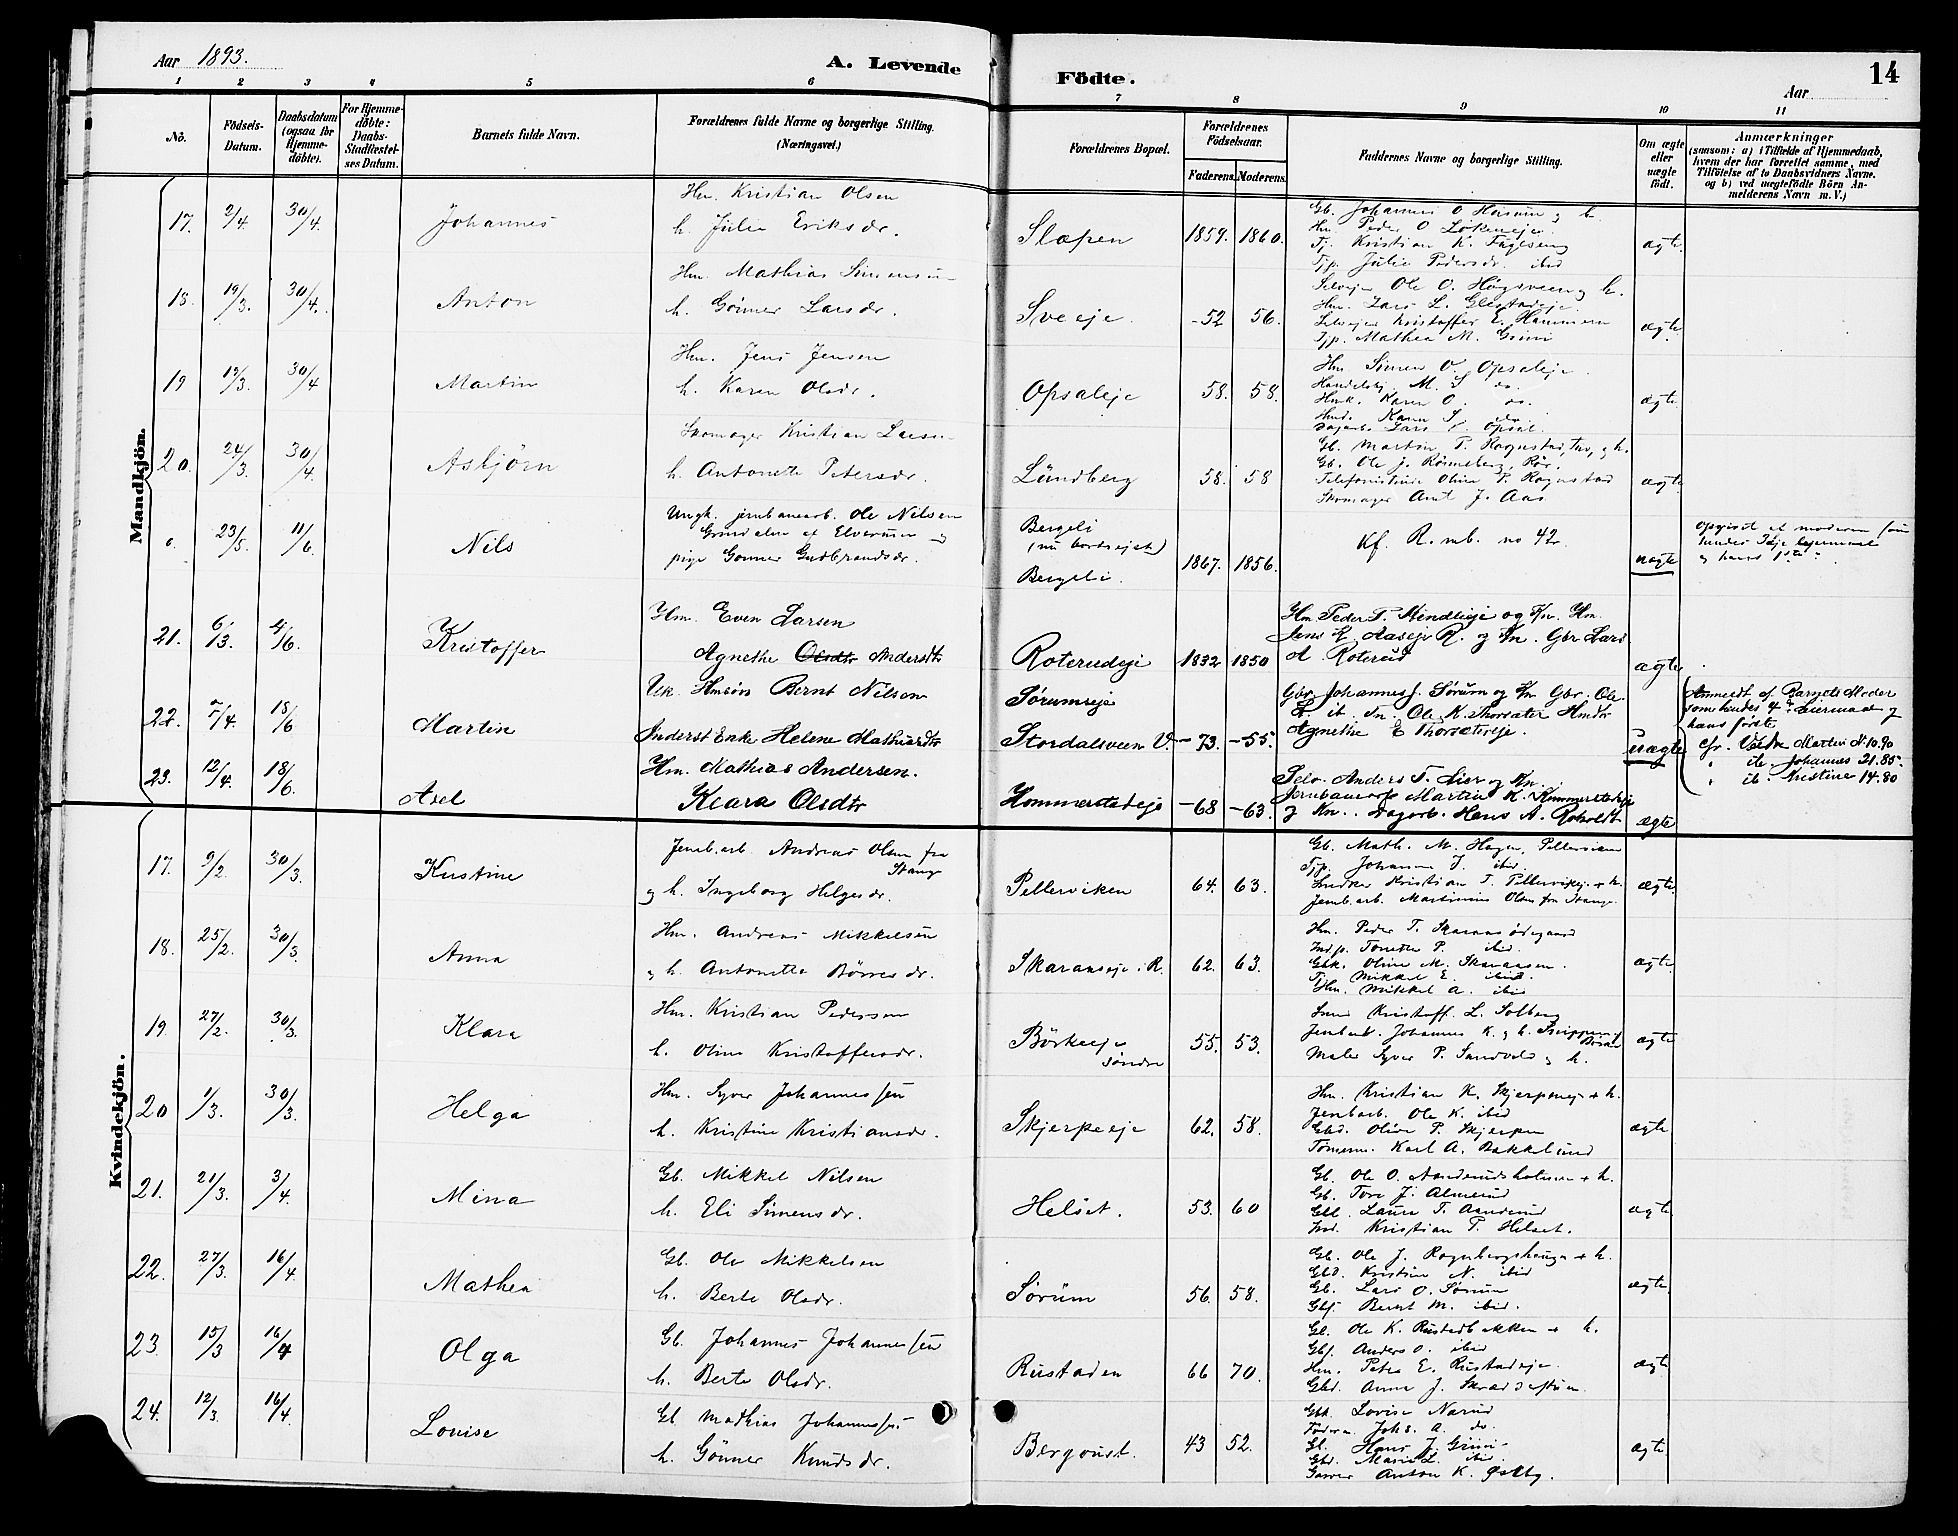 Aar 1893.
A. Levende Födte.
14
Aar
1 2 3 4 5 6 7 8 9 10 11
No.
Födsels-Datum.
Daabsdatum (ogsaa for Hjemme-döbte).
For Hjemme-döbte: Daabs-Stadfæstelses Datum.
Barnets fulde Navn.
Forældrenes fulde Navne og borgerlige Stilling. (Næringsvei.)
Forældrenes Bopæl.
Forældrenes Födselsaar.
Faderens. Moderens.
Faddernes Navne og borgerlige Stilling.
Om ægte eller uægte födt.
Anmærkninger
(saasom: a) i Tilfælde af Hjemmedaab,
hvem der har forrettet samme, med
Tilföielse af to Daabsvidners Navne.
og b) ved uægtefödte Börn An-
melderens Navn m.V.)
Mandkjön.
17. 2/4. 30/4. Johannes
Hm. Kristian Olsen
h. Julie Eriksdr.
Slæpen 1859. 1860.
Gb. Johannes O Horsum og h.
Hm. Peder O Lökeneje.
Tj. Kristian K. Fageseng
Tjp. Julie Pedersdr. ibid
ægte
18. 19/3. 30/4. Anton
Hm. Mathias Simensen
h. Gönner Larsdr.
Sveeje. -52 56.
Selvejer Ole O. Högsveen og h.
Hm. Lars L. Glestadeje.
Selvejer Kristoffer E. Hammeren
Tjp. Mathea M. Grimi
ægte
19 19/3. 30/4 Martin
Hm. Jens Jensen
h. Karen Olsdr.
Opsaleje 58. 58.
Hm Simen O. Opsaleje.
Handelsbj. M. S do.
Hmk. Karen O. do.
Hmd. Karen S do.
Dagarb. Lars E. Opsal.
ægte.
20. 24/3. 30/4. Asbjörn
Skomager Kristian Larsen
h. Antonette Petersdr.
Lundberg 58. 58
Gb. Martin P. Rognstad, Thv, og h.
Gb. Ole J. Rönneberg, Rör.
Telefonistinde Oline P. Rognstad
Skomager Amt J. Aas
ægte
o. 23/5. 11/6. Nils
Ungk. jernbanearb. Ole Nilsen
Grindalen af Elverum og
pige Gonner Gudbrandsdr.
Bergeli
(nu bortrejst)
Bergeli. 1867. 1856.
Kf. R. mb. no 42.
uægte
Opgivet af moderen som
hendes 3die lejermaal
og hans 1ste.
21. 6/3. 4/6. Kristoffer
Hm. Even Larsen
Agnethe Olsdtr Andersdtr
Roterudeje 1832 1850
Hm Peder P. Mindlieje og Kn. Hm.
Jens E. Aaseje R. og Kn. Gbr. Lars
A. Roterud
ægte
22. 7/4. 18/6 Martin
Uek. Hmsön Bernt Nilsen
Inderst Enke Helene Mathiasdtr
Sörumseje
Stordalsveen V. -73. -55.
Gbr. Johannes J. Sörum og Kn Gbr. Ole
E. ib. Tn. Ole K. Thorsæter Hmdtr
Agnethe E Thorsætereje.
uægte
Anmeldt af Barnets Moder
som hendes 4de Leiermaal og
hans förste
cfr. Valdre Martin N. 10.90
" ib. Johannes 21.85.
" ib. Kristine 14.80
23. 12/4. 18/6. Axel
Hm. Mathias Andersen.
Klara Olsdtr
Hommerstadeje -68 -63.
Selv. Anders T. Lier og Kn.
Jernbanearb Martin K. Kommerstadeje
og Kn. Dagarb. Hans A. Roholdt
ægte
Kvindekjön.
17. 9/2. 30/3. Kristine
Jernb.arb. Andreas Olsen fra Stange
og h. Ingeborg Helgesdr.
Pellerviken 64. 63.
Gb. Math. M. Hagen, Pellervien
Tjp. Johanne J. ibid
Snedker Kristian T. Pellervikej. + h.
Jernb.arb. Martinius Olsen fra Stange.
ægte.
18. 25/2. 30/3. Anna
Hm. Andreas Mikkelsen
og h. Antonette Börresdr.
Skaranseje i R. 62. 63.
Hm. Peder T. Skaraas ödegaard
Indp. Tonette P. ibid.
Gbk. Oline M. Skaraasen.
Tj. Mikkel E. ibid.
Hm. Mikkel A. ibid
ægte
19. 27/2. 30/3. Klara
Hm. Kristian Pedersen
h. Oline Kristoffersdr.
Börkeeje söndre 55. 53.
Kristoff. L. Solberg
Jernbarb. Johannes K. og h.
Maler Syver P. Sandvold og h.
ægte
20 1/3. 30/3. Helga
Hm. Syver Johannessen
h. Kristine Kristiansdr.
Skjerpeeje 62. 58.
Hm. Kristian K. Skjerpeneje + h.
Jernbarb. Ole K. ibid
Gbd. Oline P. Skjerpen
Tömmerm. Karl A. Bakkelund
ægte
21. 21/3. 3/4. Mina
Gb. Mikkel Nilsen
h. Eli Simensdr.
Helset. 53. 60
Gb. Ole O. Aanderudsholmen + h.
Gb. Tore J. Almerud
Gbd. Laura T. Aanderud
Ind. Kristian P. Helset.
ægte.
22. 27/3. 16/4. Mathea
Gb. Ole Mikkelsen
h. Berte Olsdr.
Sörum 56. 58.
Gb. Ole J. Rognbergshaugen + h.
Gbd. Kristine N. ibid
Gb. Lars O. Sörum
Gbs. Bernt M. ibid.
ægte
23. 15/3 16/4 Olga
Gb. Johannes Johannessen
h. Berte Olsdr.
Rustaden 66 70.
Gb. Ole K. Rustadbakken + h.
Gbs. Anders O. ibid
Hm. Peter E. Rustadeje.
Gbd. Anne J. Skræddestuen
ægte
24. 12/3. 16/4. Louise
Gb. Mathias Johannessen
h. Gönner Knudsdr.
Bergoust. 43 52.
Gbk. Lovise Narud
Föder. Johs. A. do.
Gb. Hans J. Grimi
Gbd. Marie L. ibid.
Garver Anton K. Östby.
ægte